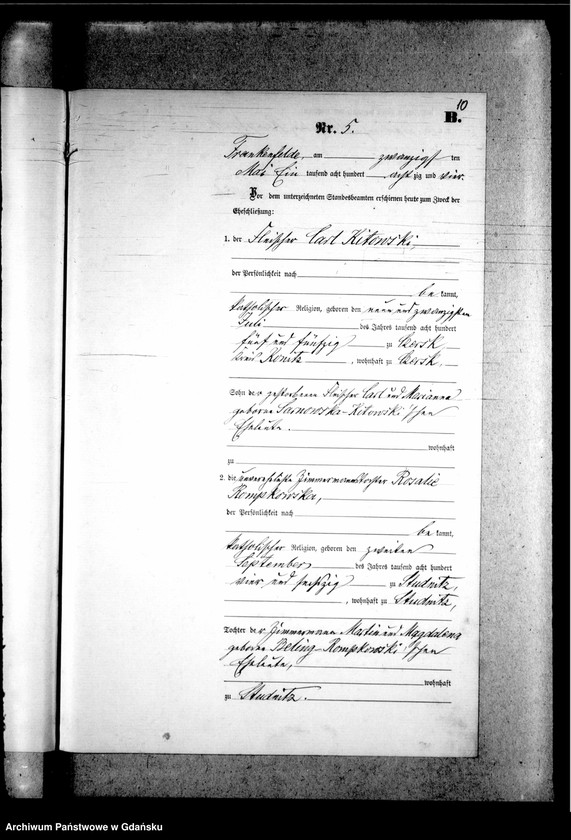 10
B.
Nr. 5.
Frankenfelde, am zwanzigsten
Mai Ein tausend acht hundert achtzig und vier.
Vor dem unterzeichneten Standesbeamten erschienen heute zum Zweck der
Eheschließung:
1. der Fleischer Carl Kitowski,
der Persönlichkeit nach
be kannt,
katholischer Religion, geboren den neun und zwanzigsten
Juli des Jahres tausend acht hundert
fünf und fünfzig zu Czersk
Kreis Konitz, wohnhaft zu Czersk,
Sohn der gestorbenen Fleischer Carl und Marianna
geborne Sarnowska-Kitowski'schen
Eheleute.
wohnhaft
zu
2. die unverehelichte Zimmermannstochter Rosalie
Rompkowska,
der Persönlichkeit nach
be kannt,
katholischer Religion, geboren den zweiten
September des Jahres tausend acht hundert
vier und sechszig zu Studnitz,
, wohnhaft zu Studnitz,
Tochter der Zimmermann Martin und Magdalena
geborne Beling-Rompkowski'schen
Eheleute,
wohnhaft
zu Studnitz.
Archiwum Państwowe w Gdańsku